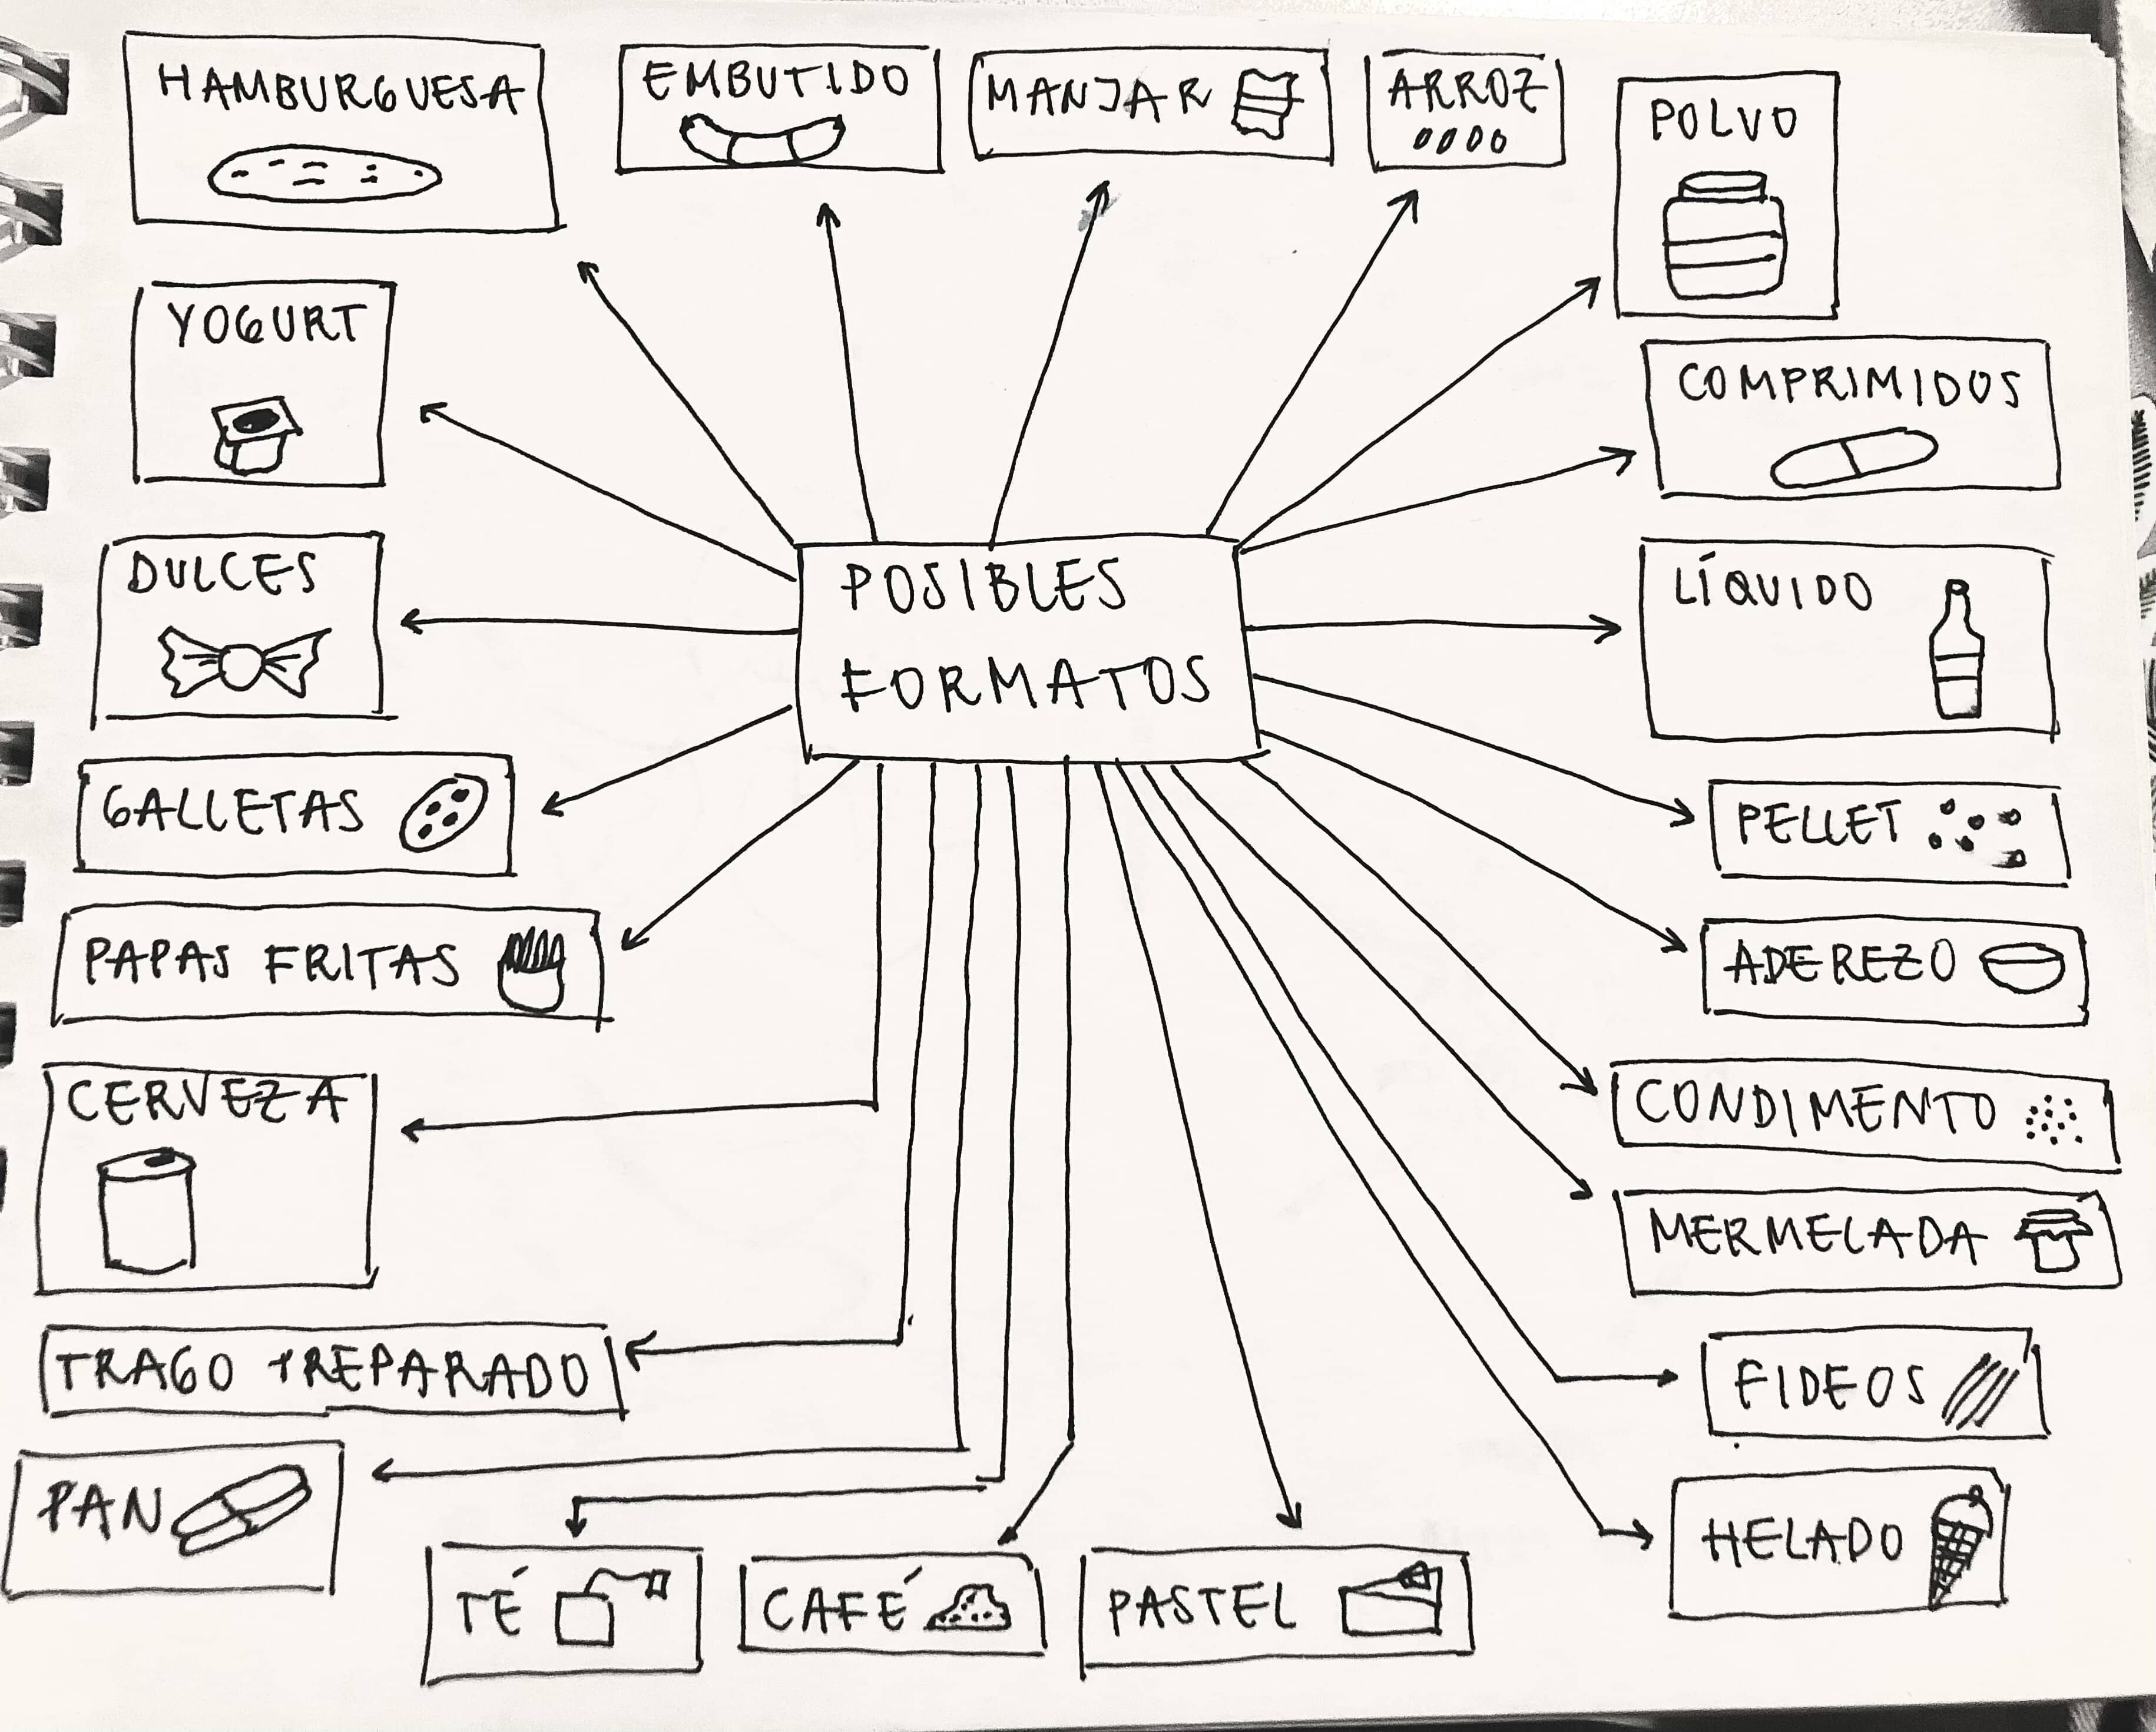 HAMBURGUESA
EMBUTIDO
MANJAR
ARROZ
POLVO
YOGURT
COMPRIMIDOS
DULCES
POSIBLES
FORMATOS
LÍQUIDO
GALLETAS
PELLET
PAPAS FRITAS
ADEREZO
CERVEZA
CONDIMENTO
MERMELADA
TRAGO PREPARADO
FIDEOS
PAN
HELADO
TÉ
CAFÉ
PASTEL